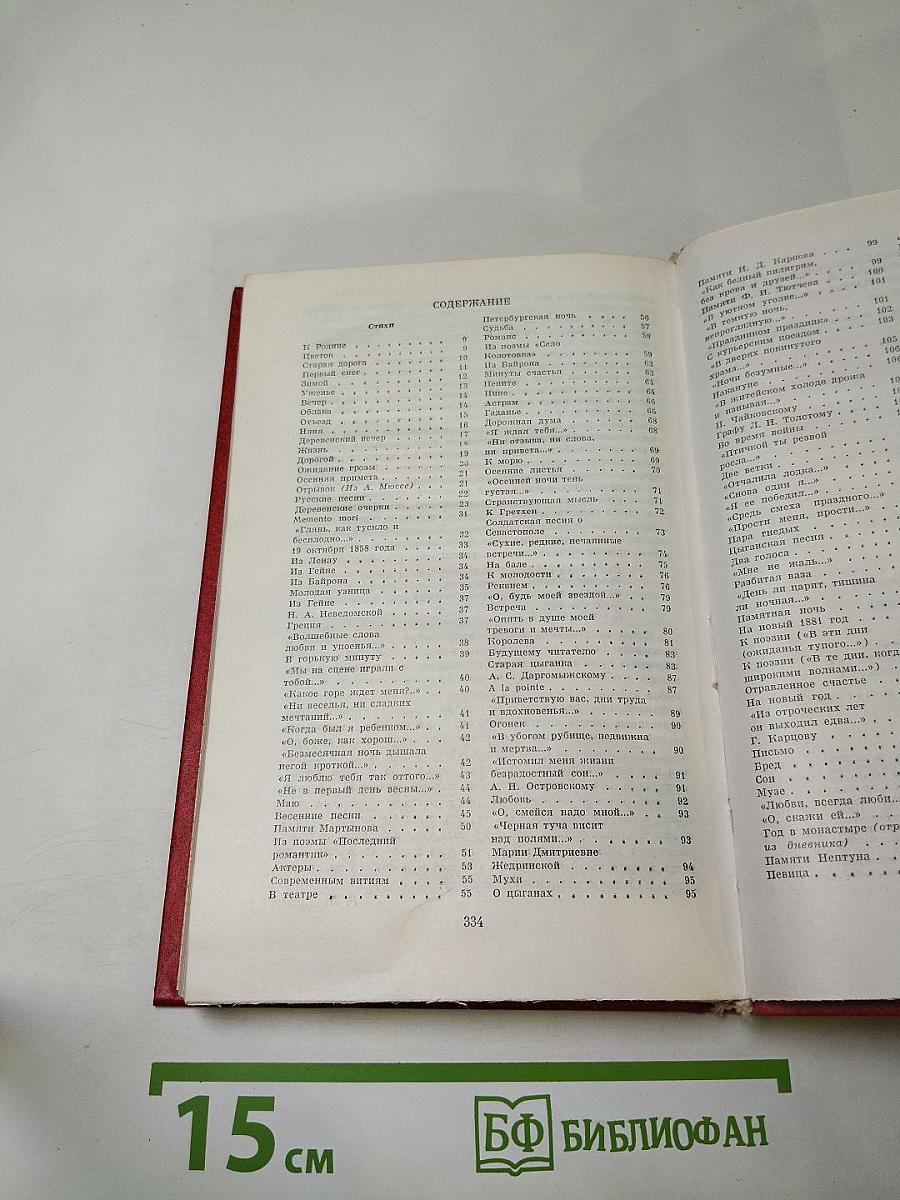 СОДЕРЖАНИЕ
Стихи
К Родине . . . . . . . . . . 9
Цветок . . . . . . . . . . 9
Старая дорога . . . . . . . . 10
Первый снег . . . . . . . . . 11
Зимой . . . . . . . . . . . 12
Ужение . . . . . . . . . . . 13
Вечер . . . . . . . . . . . 14
Облака . . . . . . . . . . . 14
Отъезд . . . . . . . . . . . 15
Няня . . . . . . . . . . . 16
Деревенский вечер . . . . . . . 17
Жизнь . . . . . . . . . . . 18
Дорогой . . . . . . . . . . 19
Ожидание грозы . . . . . . . . 20
Осенняя примета . . . . . . . . 21
Отрывок (Из А. Мюссе) . . . . . 21
Русские песни . . . . . . . . 22
Деревенские очерки . . . . . . 23
Memento mori . . . . . . . . 31
«Глянь, как тускло и
бесплодно...» . . . . . . . . 32
19 октября 1858 года . . . . . 33
Из Ленау . . . . . . . . . . 34
Из Гейне . . . . . . . . . . 34
Из Байрона . . . . . . . . . 34
Молодая узница . . . . . . . . 35
Из Гейне . . . . . . . . . . 37
Н. А. Неведомской . . . . . . . 37
Греция . . . . . . . . . . . 37
«Волшебные слова
любви и упоенья...» . . . . . . 38
В горькую минуту . . . . . . . 39
«Мы на сцене играли с
тобой...» . . . . . . . . . . 40
«Какое горе ждет меня?..» . . 40
«Ни веселья, ни сладких
мечтаний...» . . . . . . . . . 41
«Когда был я ребенком...» . . 41
«О, боже, как хорош...» . . . 42
«Безмесячная ночь дышала
негой кроткой...» . . . . . . 42
«Я люблю тебя так оттого...» 43
«Не в первый день весны...» . 44
Маю . . . . . . . . . . . . 44
Весенние песни . . . . . . . . 45
Памяти Мартынова . . . . . . . 50
Из поэмы «Последний
романтик» . . . . . . . . . . 51
Актеры . . . . . . . . . . . 53
Современным витиям . . . . . 55
В театре . . . . . . . . . . 55
Петербургская ночь . . . . . 56
Судьба . . . . . . . . . . . 57
Романс . . . . . . . . . . . 58
Из поэмы «Село
Колотовка» . . . . . . . . . 59
Из Байрона . . . . . . . . . 63
Минуты счастья . . . . . . . . 63
Пепите . . . . . . . . . . . 64
Нине . . . . . . . . . . . . 64
Астрам . . . . . . . . . . . 66
Гаданье . . . . . . . . . . . 66
Дорожная дума . . . . . . . . 68
«Я ждал тебя...» . . . . . . . 68
«Ни отзыва, ни слова,
ни привета...» . . . . . . . . 69
К морю . . . . . . . . . . . 69
Осенние листья . . . . . . . . 70
«Осенней ночи тень
густая...» . . . . . . . . . . 71
Странствующая мысль . . . . 71
К Гретхен . . . . . . . . . . 72
Солдатская песня о
Севастополе . . . . . . . . . 73
«Сухие, редкие, нечаянные
встречи...» . . . . . . . . . . 74
На бале . . . . . . . . . . . 75
К молодости . . . . . . . . . 76
Реквием . . . . . . . . . . . 76
«О, будь моей звездой...» . . 79
Встреча . . . . . . . . . . . 79
«Опять в душе моей
тревоги и мечты...» . . . . . . 80
Королева . . . . . . . . . . 81
Будущему читателю . . . . . . 83
Старая цыганка . . . . . . . . 83
А. С. Даргомыжскому . . . . . 87
A la pointe . . . . . . . . . 87
«Приветствую вас, дни труда
и вдохновенья...» . . . . . . 89
Огонек . . . . . . . . . . . 90
«В убогом рубище, недвижна
и мертва...» . . . . . . . . . 90
«Истомил меня жизни
безрадостный сон...» . . . . . 91
А. Н. Островскому . . . . . . 91
Любовь . . . . . . . . . . . 92
«О, смейся надо мной...» . . . 93
«Черная туча висит
над полями...» . . . . . . . . 93
Марии Дмитриевне
Жедринской . . . . . . . . . 94
Мухи . . . . . . . . . . . . 95
О цыганах . . . . . . . . . . 95
334
Памяти Н. Д. Карпова . . . 99
«Как бедный пилигрим,
без крова и друзей...» . . . 99
Памяти Ф. И. Тютчева . . . 100
«В уютном уголке...» . . . . 101
«В темную ночь,
непроглядную...» . . . . . . 101
«Праздником праздник» . . . 102
С курьерским поездом . . . . 103
«В дверях покинутого
храма...» . . . . . . . . . . 105
«Ночи безумные...» . . . . . 105
Накануне . . . . . . . . . . 106
«В житейском холоде дрожа
и изнывая...» . . . . . . . .
П. Чайковскому . . . . . . .
Графу Л. Н. Толстому . . . .
Во время войны . . . . . . .
«Птичкой ты резвой
росла...» . . . . . . . . . .
Две ветки . . . . . . . . . .
«Отчалила лодка...» . . . . .
«Снова один я...» . . . . . .
«Я ее победил...» . . . . . .
«Средь смеха праздного...»
«Прости меня, прости...» . .
Пара гнедых . . . . . . . . .
Цыганская песня . . . . . . .
Два голоса . . . . . . . . . .
«Мне не жаль...» . . . . . .
Разбитая ваза . . . . . . . .
«День ли царит, тишина
ли ночная...» . . . . . . . .
Памятная ночь . . . . . . . .
На новый 1881 год . . . . . .
К поэзии («В эти дни
ожиданья тупого...») . . . .
К поэзии («В те дни, когд
широкими волнами...») . . .
Отравленное счастье . . . . .
На новый год . . . . . . . .
«Из отроческих лет
он выходил едва...» . . . . .
Г. Карцову . . . . . . . . .
Письмо . . . . . . . . . . .
Бред . . . . . . . . . . . .
Сон . . . . . . . . . . . .
Музе . . . . . . . . . . . .
«Любви, всегда люби...
«О, скажи ей...» . . . . . .
Год в монастыре (отр
из дневника) . . . . . . . .
Памяти Нептуна . . . . . . .
Певица . . . . . . . . . . .
15 см
БФ БИБЛИОФАН